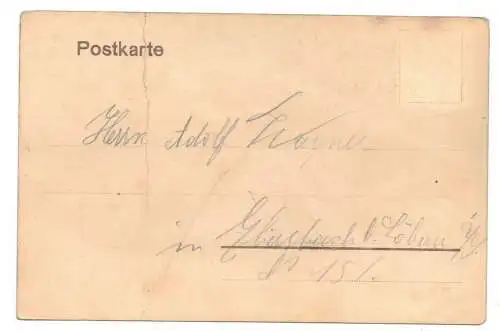 Postkarte
Herrn Adolf Wagner
in Ebersbach b. Löbau i/S.
No 151.